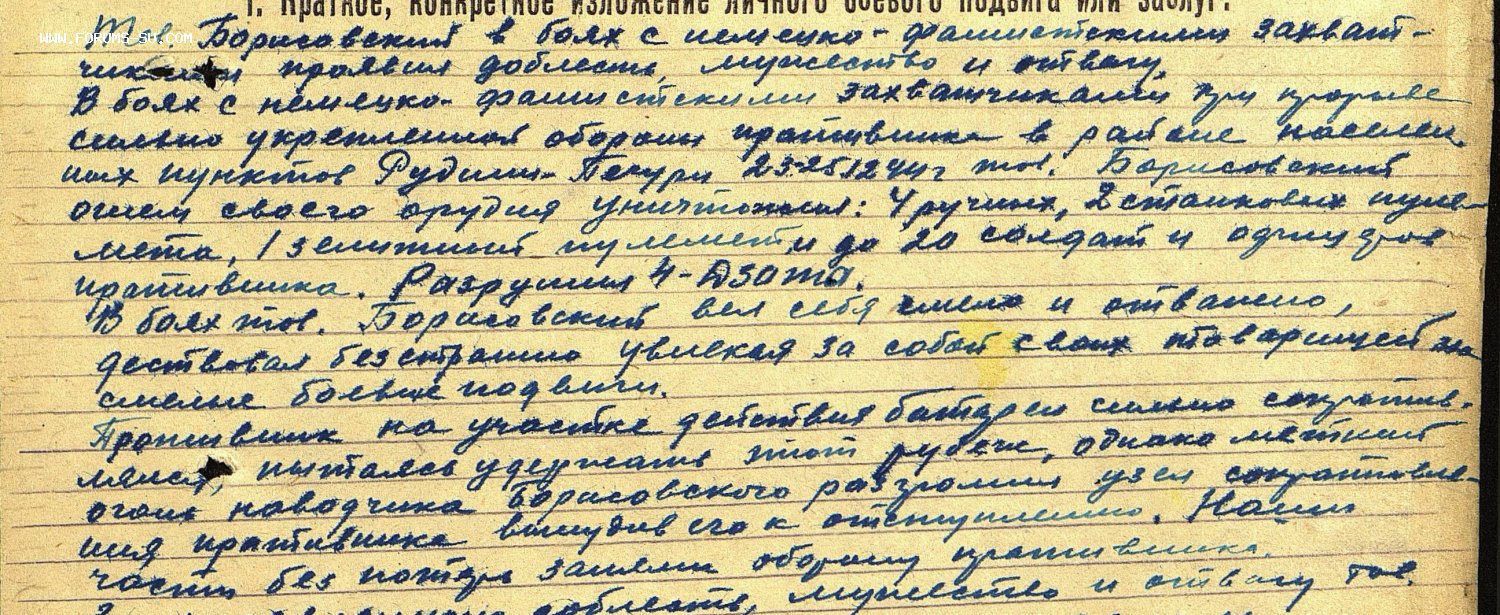 1. Краткое, конкретное изложение личного боевого подвига или заслуг:
WWW.FORUMS-SU.COM
Тов. Борисовский в боях с немецко-фашистскими захват-
чиками проявил доблесть, мужество и отвагу.
В боях с немецко-фашистскими захватчиками при прорыве
сильно укрепленной обороны противника в районе населен
ных пунктов Печури тов. Борисовский
огнем своего орудия уничтожил: 4 ручных, 2 станковых пуле-
мета, 1 зенитный пулемет и до 20 солдат и офицеров
противника. Разрушил 4-Дзота.
В боях тов. Борисовский вел себя смело и отважно,
дествовал безстрашно увлекая за собой своих товарищей на
смелые боевые подвиги.
Противник на участке действия батареи сильно сопротив-
лялся, пытаясь удержать этот рубеж, однако меткий
огонь наводчика Борисовского разгромил узел сопротивле-
ния противника вынудив его к отступлению. Наши
части без потерь заняли оборону противника.
доблесть, мужество и отвагу тов.